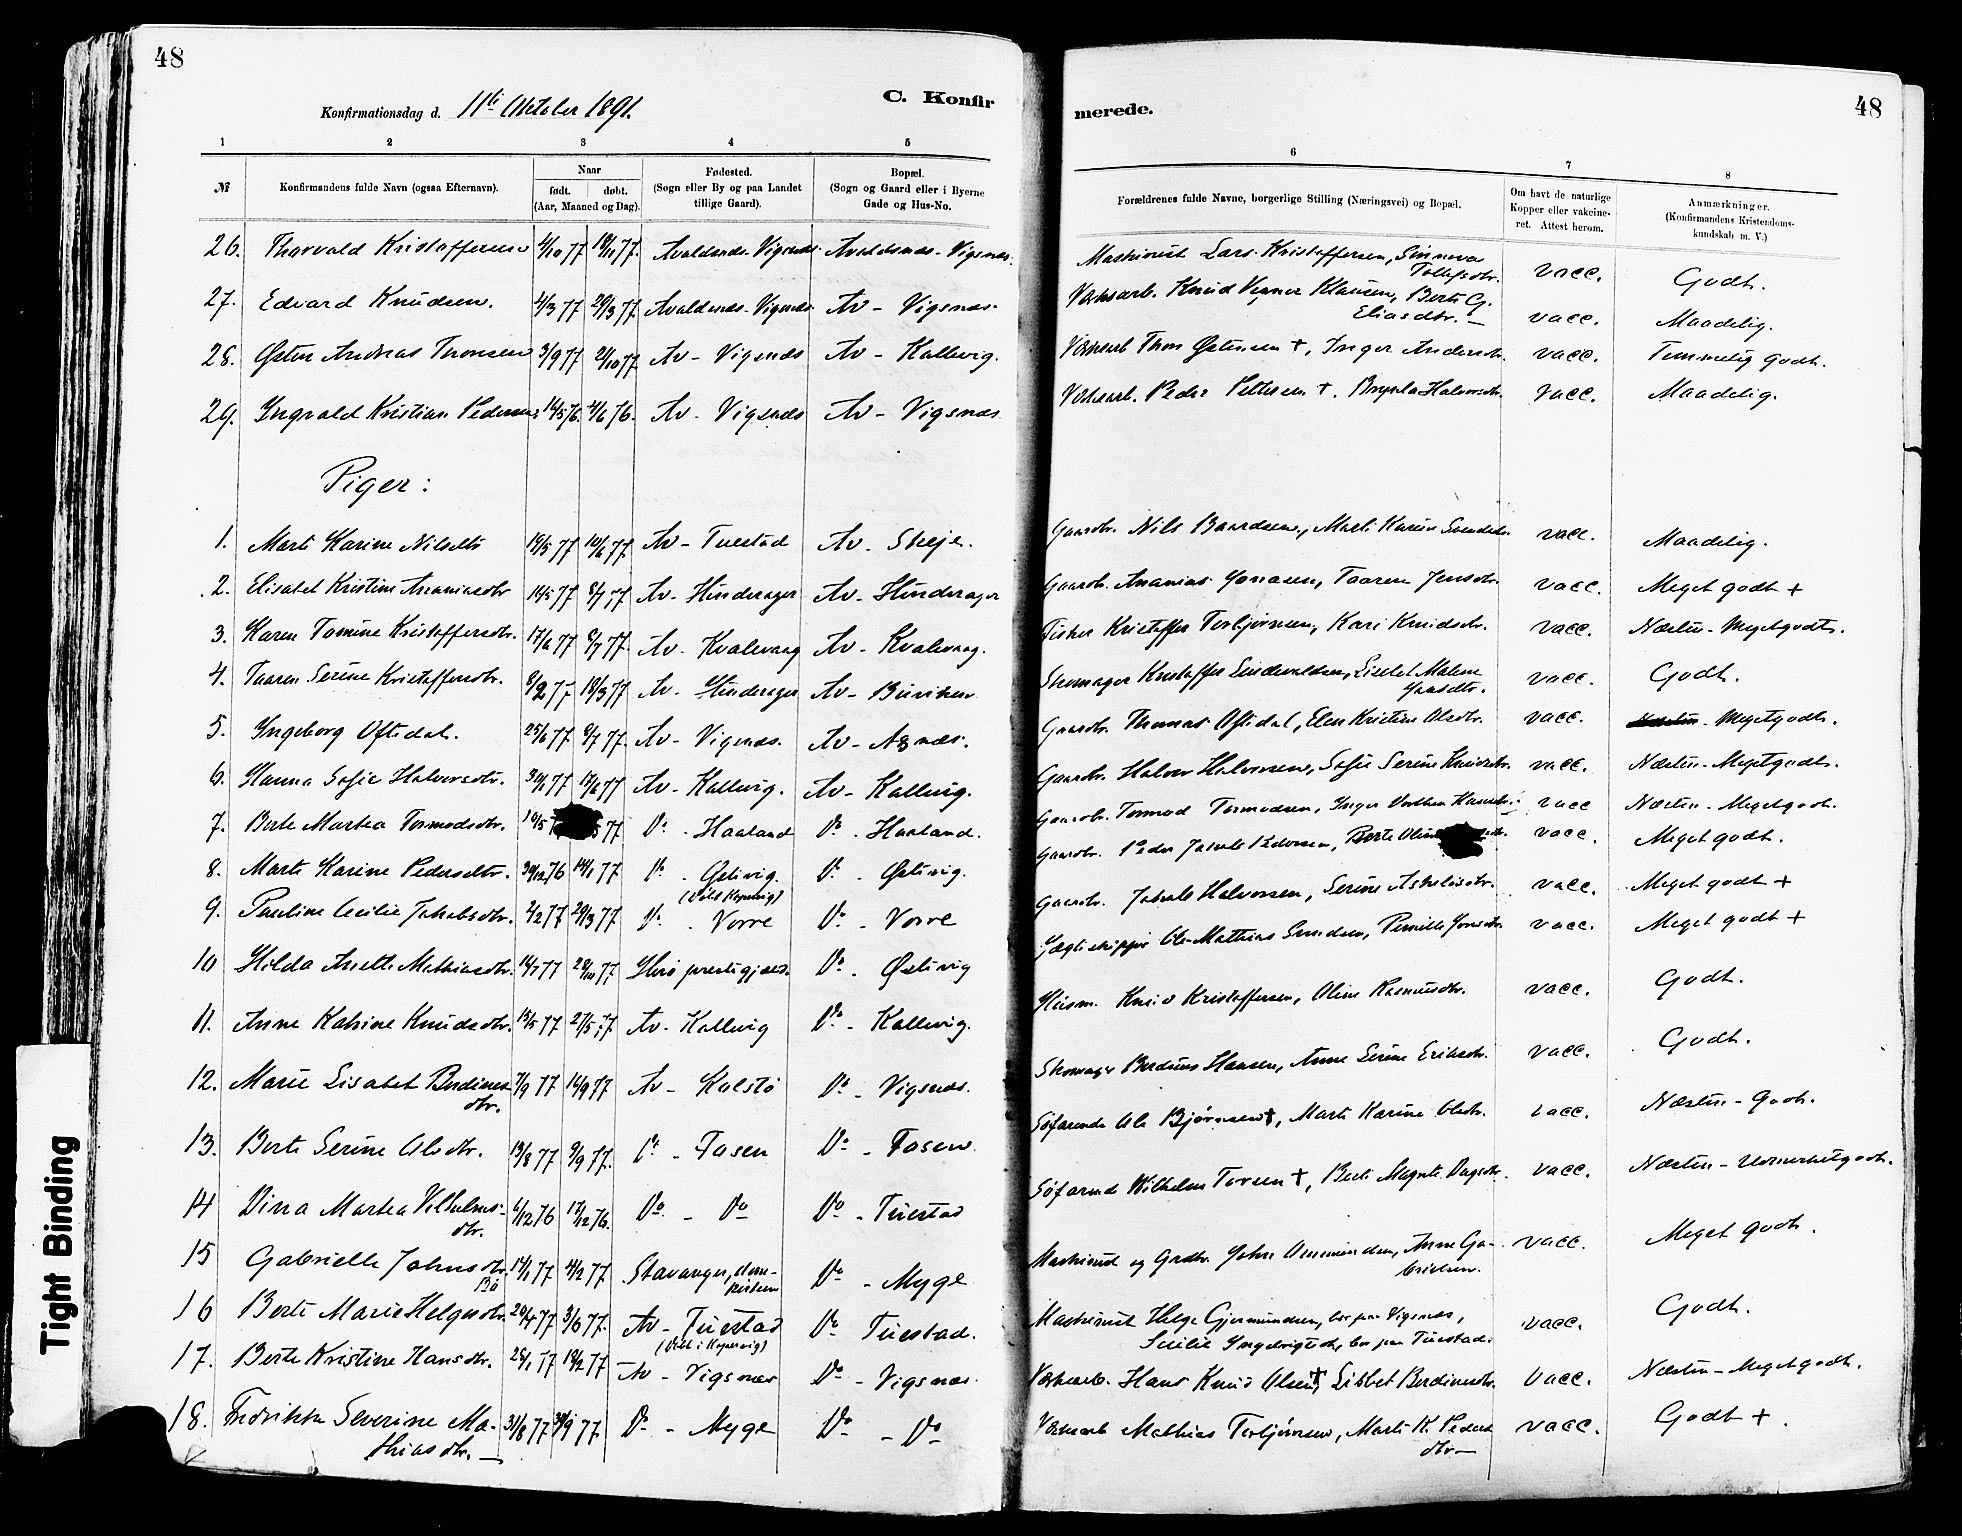 48
Konfirmationsdag d. 11te Oktober 1891.
C. Konfir
merede.
48
1 2 3 4 5 6 7 8
№ Konfirmandens fulde Navn (ogsaa Efternavn). Naar født. døbt. (Aar, Maaned og Dag). Fødested. (Sogn eller By og paa Landet tillige Gaard). Bopæl. (Sogn og Gaard eller i Byerne Gade og Hus-No. Forældrenes fulde Navne, borgerlige Stilling (Næringsvei) og Bopæl. Om havt de naturlige Kopper eller vakcineret. Attest herom. Anmærkninger. (Konfirmandens Kristendomskundskab m. V.)
26. Thorvald Kristoffersen 4/10 77 18/11 77. Avaldsnæs-Vigsnæs. Avaldsnæs-Vigsnæs. Maskinist Lars Kristoffersen, Sinnova Tollefsdtr. vacc. Godt.
27. Edvard Knudsen. 4/3 77 29/3 77. Avaldsnæs-Vigsnæs. Av - Vigsnæs. Værksarb. Knud Klausen, Berte G. Eliasdtr. — vacc. Maadelig.
28. Østen Andreas Tronsen 3/9 77 21/10 77. Av - Vigsnæs Av - Kallevig. Værksarb. Østensen +, Inger Andersdtr. vacc. Temmelig godt.
29. Yngvald Kristian Pedersen 14/5 76. 4/6 76. Av. Vigsnæs Av - Vigsnæs Værksarb. Peder Pettersen +. Halvorsdtr. vacc. Maadelig.
Piger:
1. Marte Karine Nilsdtr 19/5 77 10/6 77. Av - Tuestad Av. Skeje. Gaardbr. Nils Baardsen, Marte Karine Svendsdtr. vacc. Maadelig.
2. Elisabet Kristine Ananiasdtr 14/5 77 8/7 77 Av - Hinderager Av - Hinderager Gaardb. Ananias Jonasen, Taaren Jensdtr. vacc. Meget godt +
3. Karen Tomine Kristoffersdtr. 17/6 77 8/7 77. Av - Kvalevaag Av - Kvalevaag. Fisker Kristoffer Torbjørnsen, Kari Knudsdtr. vacc. Næsten - Megetgodt.
4. Taaren Serine Kristoffersdtr. 8/2 77 18/3 77 Av. Hinderager Av - Skomager Kristoffer Lisabet Malene vacc. Godt.
5. Yngeborg Oftedal. 25/6 77 8/7 77. Av - Vigsnæs. Av - Gaardbr. Thomas Oftedal, Elen Kristine Olsdtr. vacc. Megetgodt.
6. Hanna Sofie Halvorsdtr. 17/6 77 Av - Kallevig. Av - Kallevig. Gaardbr. Halvor Halvorsen, Sofie Serine Knudsdtr. vacc. Næsten - Megetgodt.
7. Berte Martea Tormodsdtr. 77 Do. Haaland Do. Haaland. Gaardbr. Tormod Tormodsen, Inger vacc Næsten - Megetgodt.
8. Marte Karine Pedersdtr. 30/12 76 14/1 77 Do. Østevig. Do. Østevig. Gaardbr. Peder Jakob Pedersen, Berte Oline vacc. Meget godt.
9. Pauline Cecilie Jakobsdtr. 2/2 77 29/3 77 (Døbt Kopervig) Do. Vorre Do. Vorre Gaardbr. Jakob Halvorsen, Serine vacc. Meget godt +
10 Hilda Anette Mathiasdtr. 14/7 77 28/10 77 Hvis prestegjæld. Do. Østevig Jægteskipper Ole Mathias Pernille vacc. Meget godt +
11. Anne Katrine Knudsdtr. 15/5 77 27/5 77 Av - Kallevig Do. Kallevig. Husm. Knud Kristoffersen, Oline Rasmusdtr. vacc. Godt.
12. Marie Lisabet Berdines dtr. 7/9 77 16/9 77 Av - Kolstø Do. Vigsnæs. Skomager Berdines Hansen, Anne Serine Eriksdtr. vacc. Godt.
13. Berte Serine Olsdtr. 13/8 77 9/9 77. Do. Fosen Do. Fosen. Søfarende Ole Bjørnsen +, Marte Karine Olsdtr. vacc. Næsten - Godt.
14 Dina Martea Vilhelms- dtr. 6/12 76 17/12 76. Do - Do Do. Tuestad Søfarende Wilhelm Torsen +, Berte vacc. Næsten - Udmerketgodt.
15 Gabrielle Johnsdtr. Bø 14/1 77 4/2 77 Stavanger, dom- kirken Do - Myge Maskinist og Grdbr. John Ommundsen, Anne Ga- brielsen. vacc. Meget godt.
16 Berte Marie Helgesdtr. 20/4 77 3/6 77. Av - Tuestad (Døbt i Kopervig) Do. Tuestad. Maskinist Helge Gjermundsen, bor paa Vigsnæs, Yngebrigtsdtr, bor paa Tuestad. vacc. Godt.
17. Berte Kristine Hansdtr. 28/1 77 18/2 77 Av - Vigsnæs Do - Vigsnæs. Værksarb. Hans Knud Olsen +, Lisbet Berdinesdtr. vacc. Næsten - Megetgodt.
18. Fredrikke Severine Ma- thiasdtr. — 31/8 77 30/9 77. Do - Myge Do - Do Værksarb Mathias Torbjørnsen, Marte K. Peders dtr — vacc. Godt +.
Tight Binding